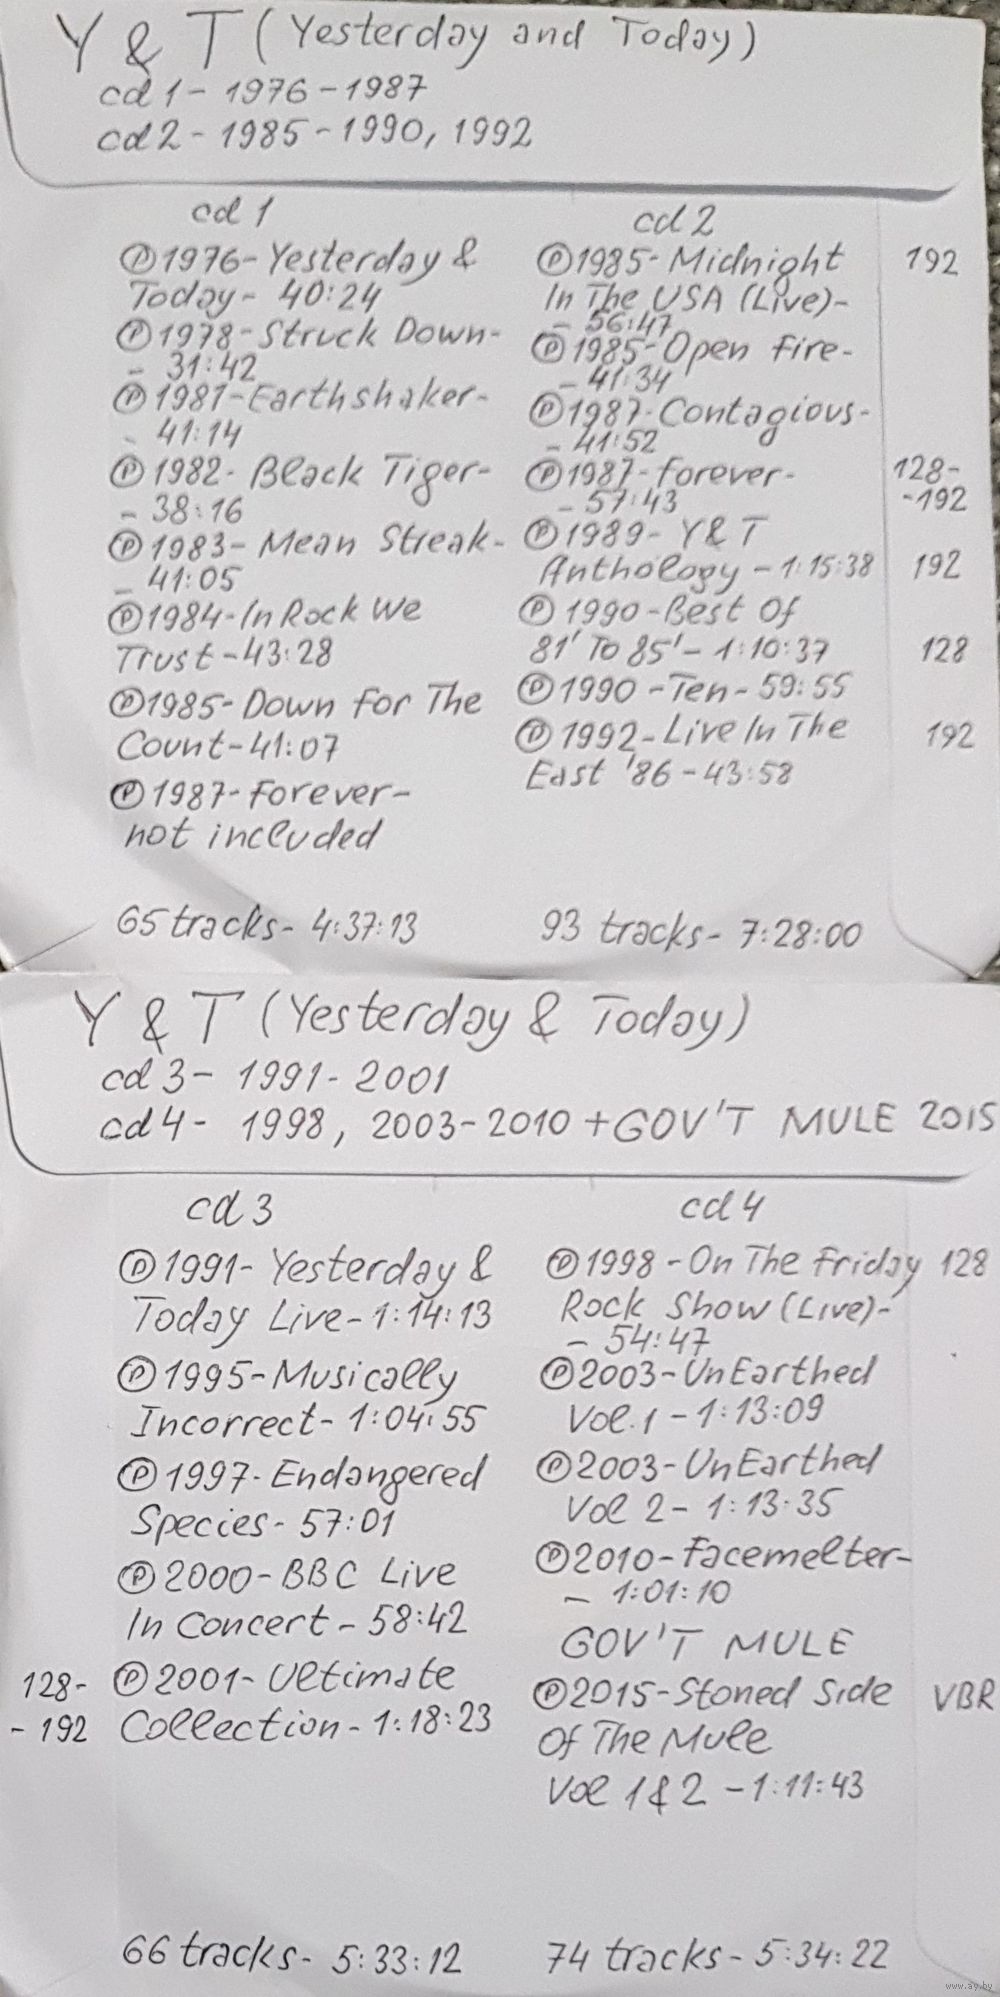 Y & T (Yesterday and Today)
cd 1 - 1976 - 1987
cd 2 - 1985 - 1990, 1992
cd 1
Ⓟ 1976 - Yesterday &
Today - 40:24
Ⓟ 1978 - Struck Down -
- 31:42
Ⓟ 1981 - Earthshaker -
- 41:14
Ⓟ 1982 - Black Tiger -
- 38:16
Ⓟ 1983 - Mean Streak -
- 41:05
Ⓟ 1984 - In Rock We
Trust - 43:28
Ⓟ 1985 - Down For The
Count - 41:07
Ⓟ 1987 - Forever -
not included
65 tracks - 4:37:13
cd 2
Ⓟ 1985 - Midnight 192
In The USA (Live) -
- 56:47
Ⓟ 1985 - Open Fire -
- 41:34
Ⓟ 1987 - Contagious -
- 41:52
Ⓟ 1987 - Forever - 128 -
- 57:43 - 192
Ⓟ 1989 - Y & T
Anthology - 1:15:38 192
Ⓟ 1990 - Best Of
81' To 85' - 1:10:37 128
Ⓟ 1990 - Ten - 59:55
Ⓟ 1992 - Live In The 192
East '86 - 43:58
93 tracks - 7:28:00
Y & T (Yesterday & Today)
cd 3 - 1991 - 2001
cd 4 - 1998, 2003 - 2010 + GOV'T MULE 2015
cd 3
Ⓟ 1991 - Yesterday &
Today Live - 1:14:13
Ⓟ 1995 - Musically
Incorrect - 1:04:55
Ⓟ 1997 - Endangered
Species - 57:01
Ⓟ 2000 - BBC Live
In Concert - 58:42
128 - Ⓟ 2001 - Ultimate
- 192 Collection - 1:18:23
66 tracks - 5:33:12
cd 4
Ⓟ 1998 - On The Friday 128
Rock Show (Live) -
- 54:47
Ⓟ 2003 - UnEarthed
Vol. 1 - 1:13:09
Ⓟ 2003 - UnEarthed
Vol 2 - 1:13:35
Ⓟ 2010 - Facemelter -
- 1:01:10
GOV'T MULE
Ⓟ 2015 - Stoned Side VBR
Of The Mule
Vol 1 & 2 - 1:11:43
74 tracks - 5:34:22
www.ay.by